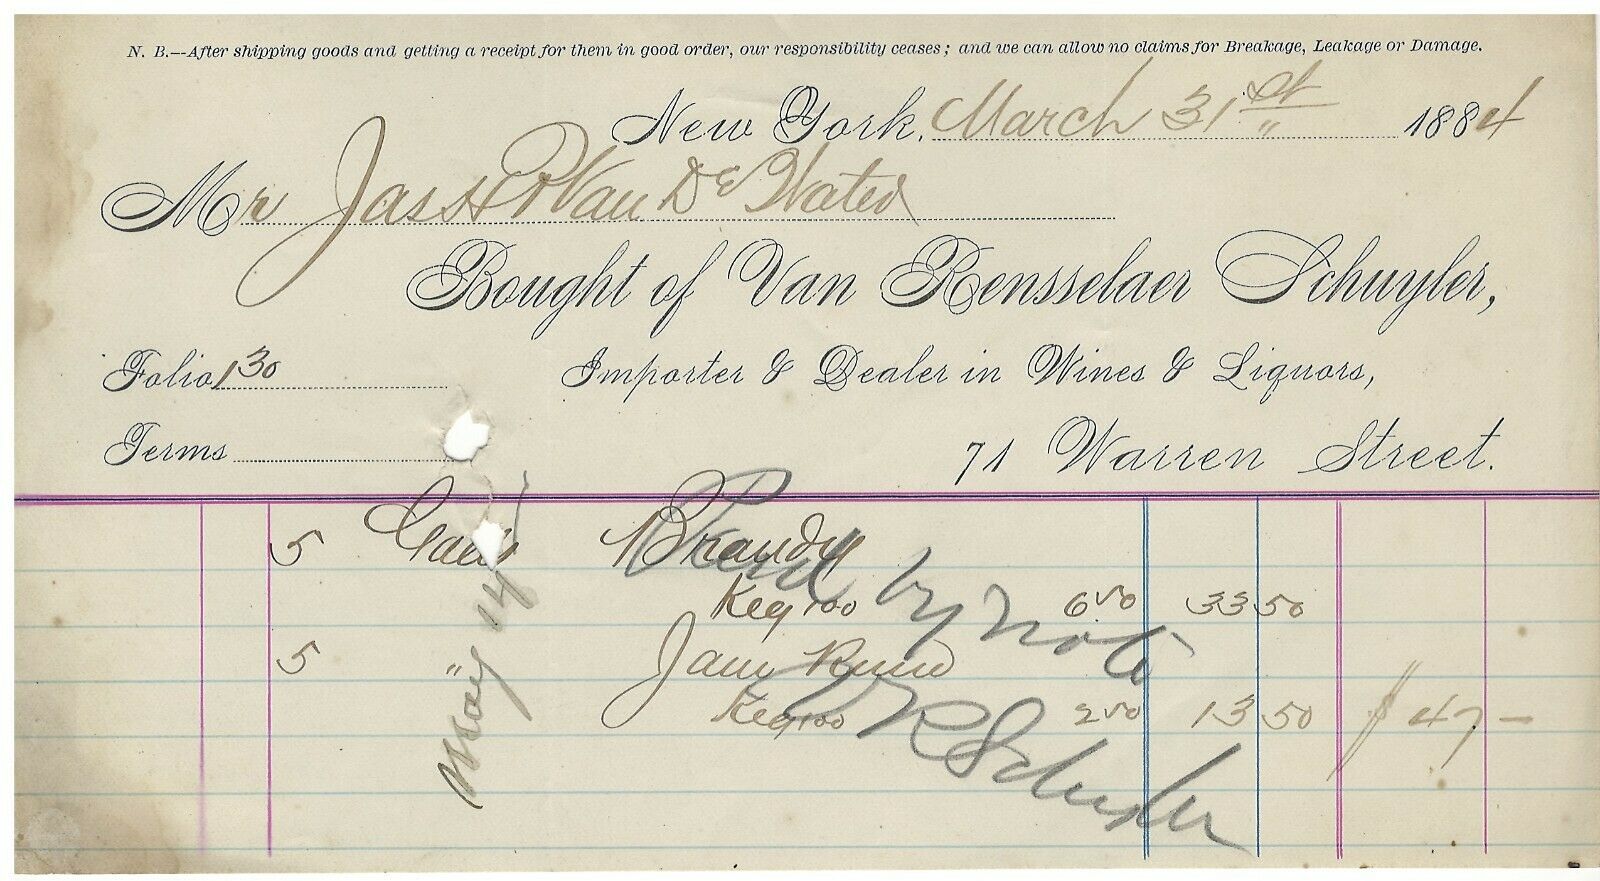 N. B.--After shipping goods and getting a receipt for them in good order, our responsibility ceases; and we can allow no claims for Breakage, Leakage or Damage.
New York, March 31st 1884
Mr Jas H Van De Water
Bought of Van Rensselaer Schuyler,
Folio 130 Importer & Dealer in Wines & Liquors,
Terms 71 Warren Street.
5 Galls Brandy
Keg 100 6 50 33 50
5 " Jam Rum
Keg 100 2 50 13 50 $ 47 -
May 14
Recd by note
V R Schuyler